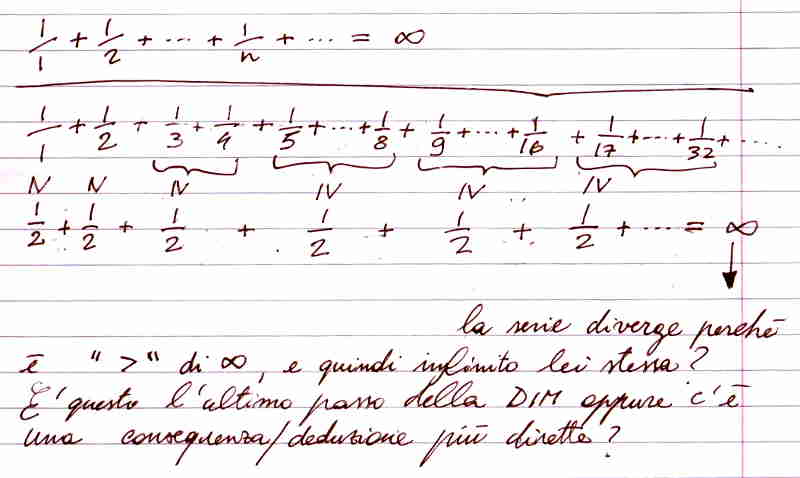 1/1 + 1/2 + ... + 1/n + ... = ∞
1/1 + 1/2 + 1/3 + 1/4 + 1/5 + ... + 1/8 + 1/9 + ... + 1/16 + 1/17 + ... + 1/32 + ....
≥ ≥ ≥ ≥ ≥ ≥
1/2 + 1/2 + 1/2 + 1/2 + 1/2 + 1/2 + ... = ∞
la serie diverge perchè
è " > " di ∞, e quindi infinito lei stessa?
E' questo l'ultimo passo della DIM oppure c'è
una conseguenza/deduzione più diretta?